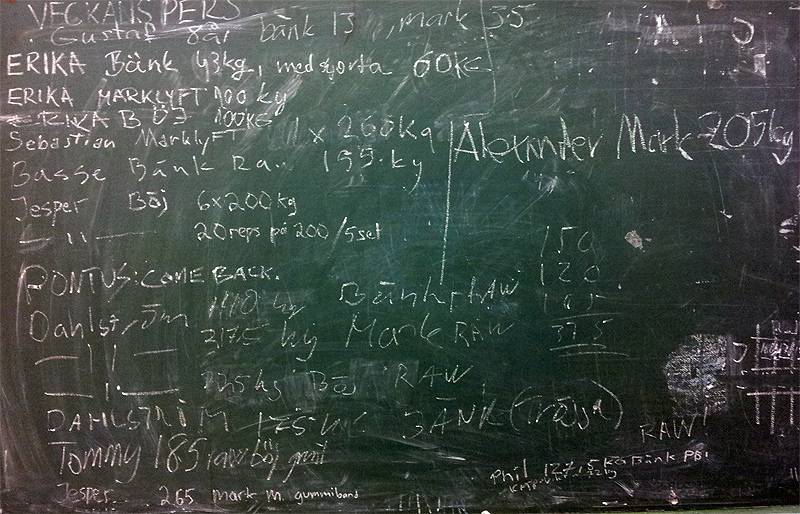 VECKANS PERS
Gustaf 8år bänk 13, mark 35
ERIKA Bänk 43kg, med skjorta 60KG
ERIKA MARKLYFT 100 kg
ERIKA BÖJ 100KG
Sebastian Marklyft 1 x 260kg
Alexander Mark 205kg
Basse Bänk Raw 155 kg
Jesper Böj 6x200kg
— " — 20 reps på 200/5set
PONTUS: COME BACK.
150
120
Dahlström 140 kg Bänk RAW
105
— " — 217,5 kg Mark RAW
375
— " — kg Böj RAW
DAHLSTRÖM 175 kg BÄNK (Tröja)
RAW!
Tommy 185 raw böj
Phil 127,5kg Bänk PB!
Jesper 265 mark m. gummiband